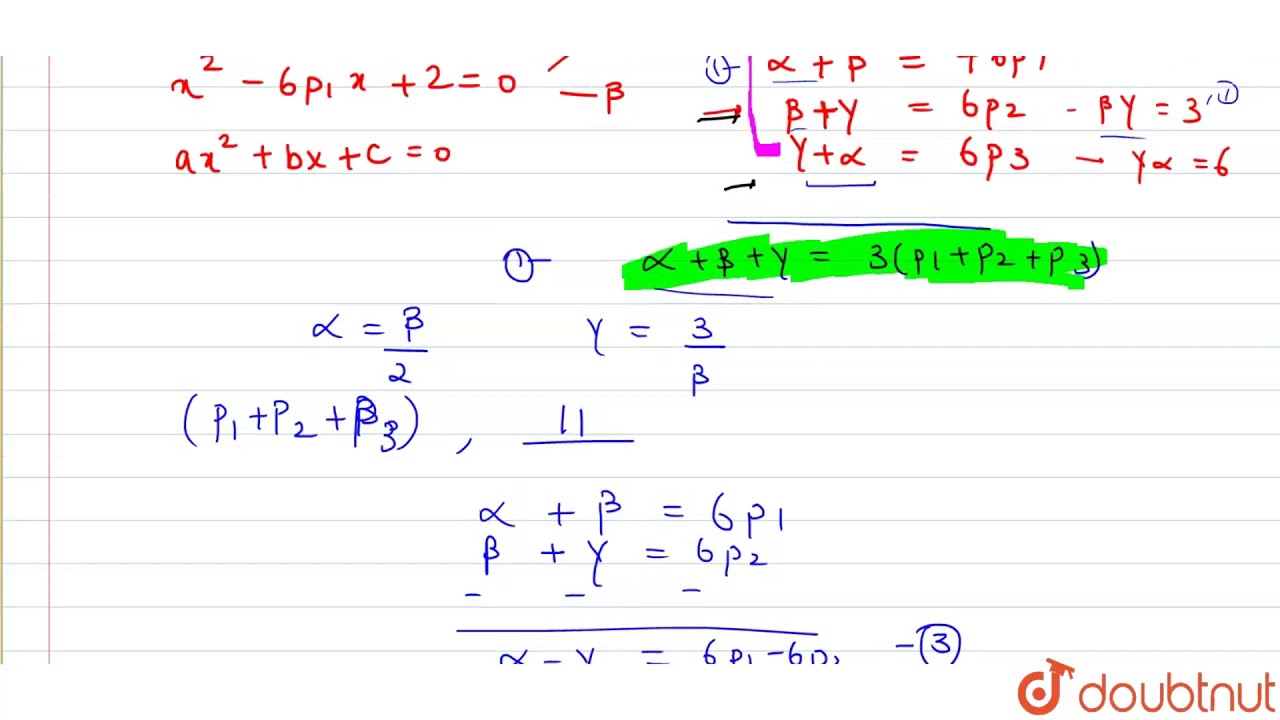 x² - 6p₁x + 2 = 0 — β
① α + β = 6p₁
β + γ = 6p₂ - βγ = 3, ①
ax² + bx + c = 0
γ + α = 6p₃ → γα = 6
① α + β + γ = 3(p₁ + p₂ + p₃)
α = β/2 γ = 3/β
(p₁ + p₂ + p₃), 11
α + β = 6p₁
β + γ = 6p₂
- - -
α - γ = 6p₁ - 6p₂ - ③
doubtnut